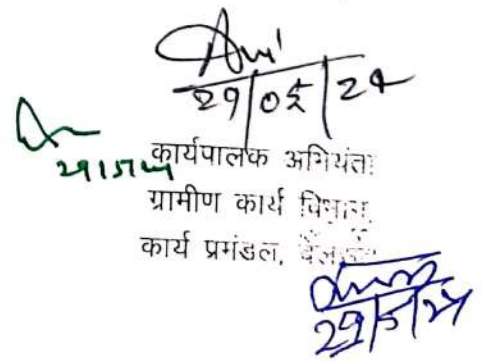 29/05/24
29/5/24
कार्यपालक अभियंता
ग्रामीण कार्य विभाग,
कार्य प्रमंडल,
29/5/24